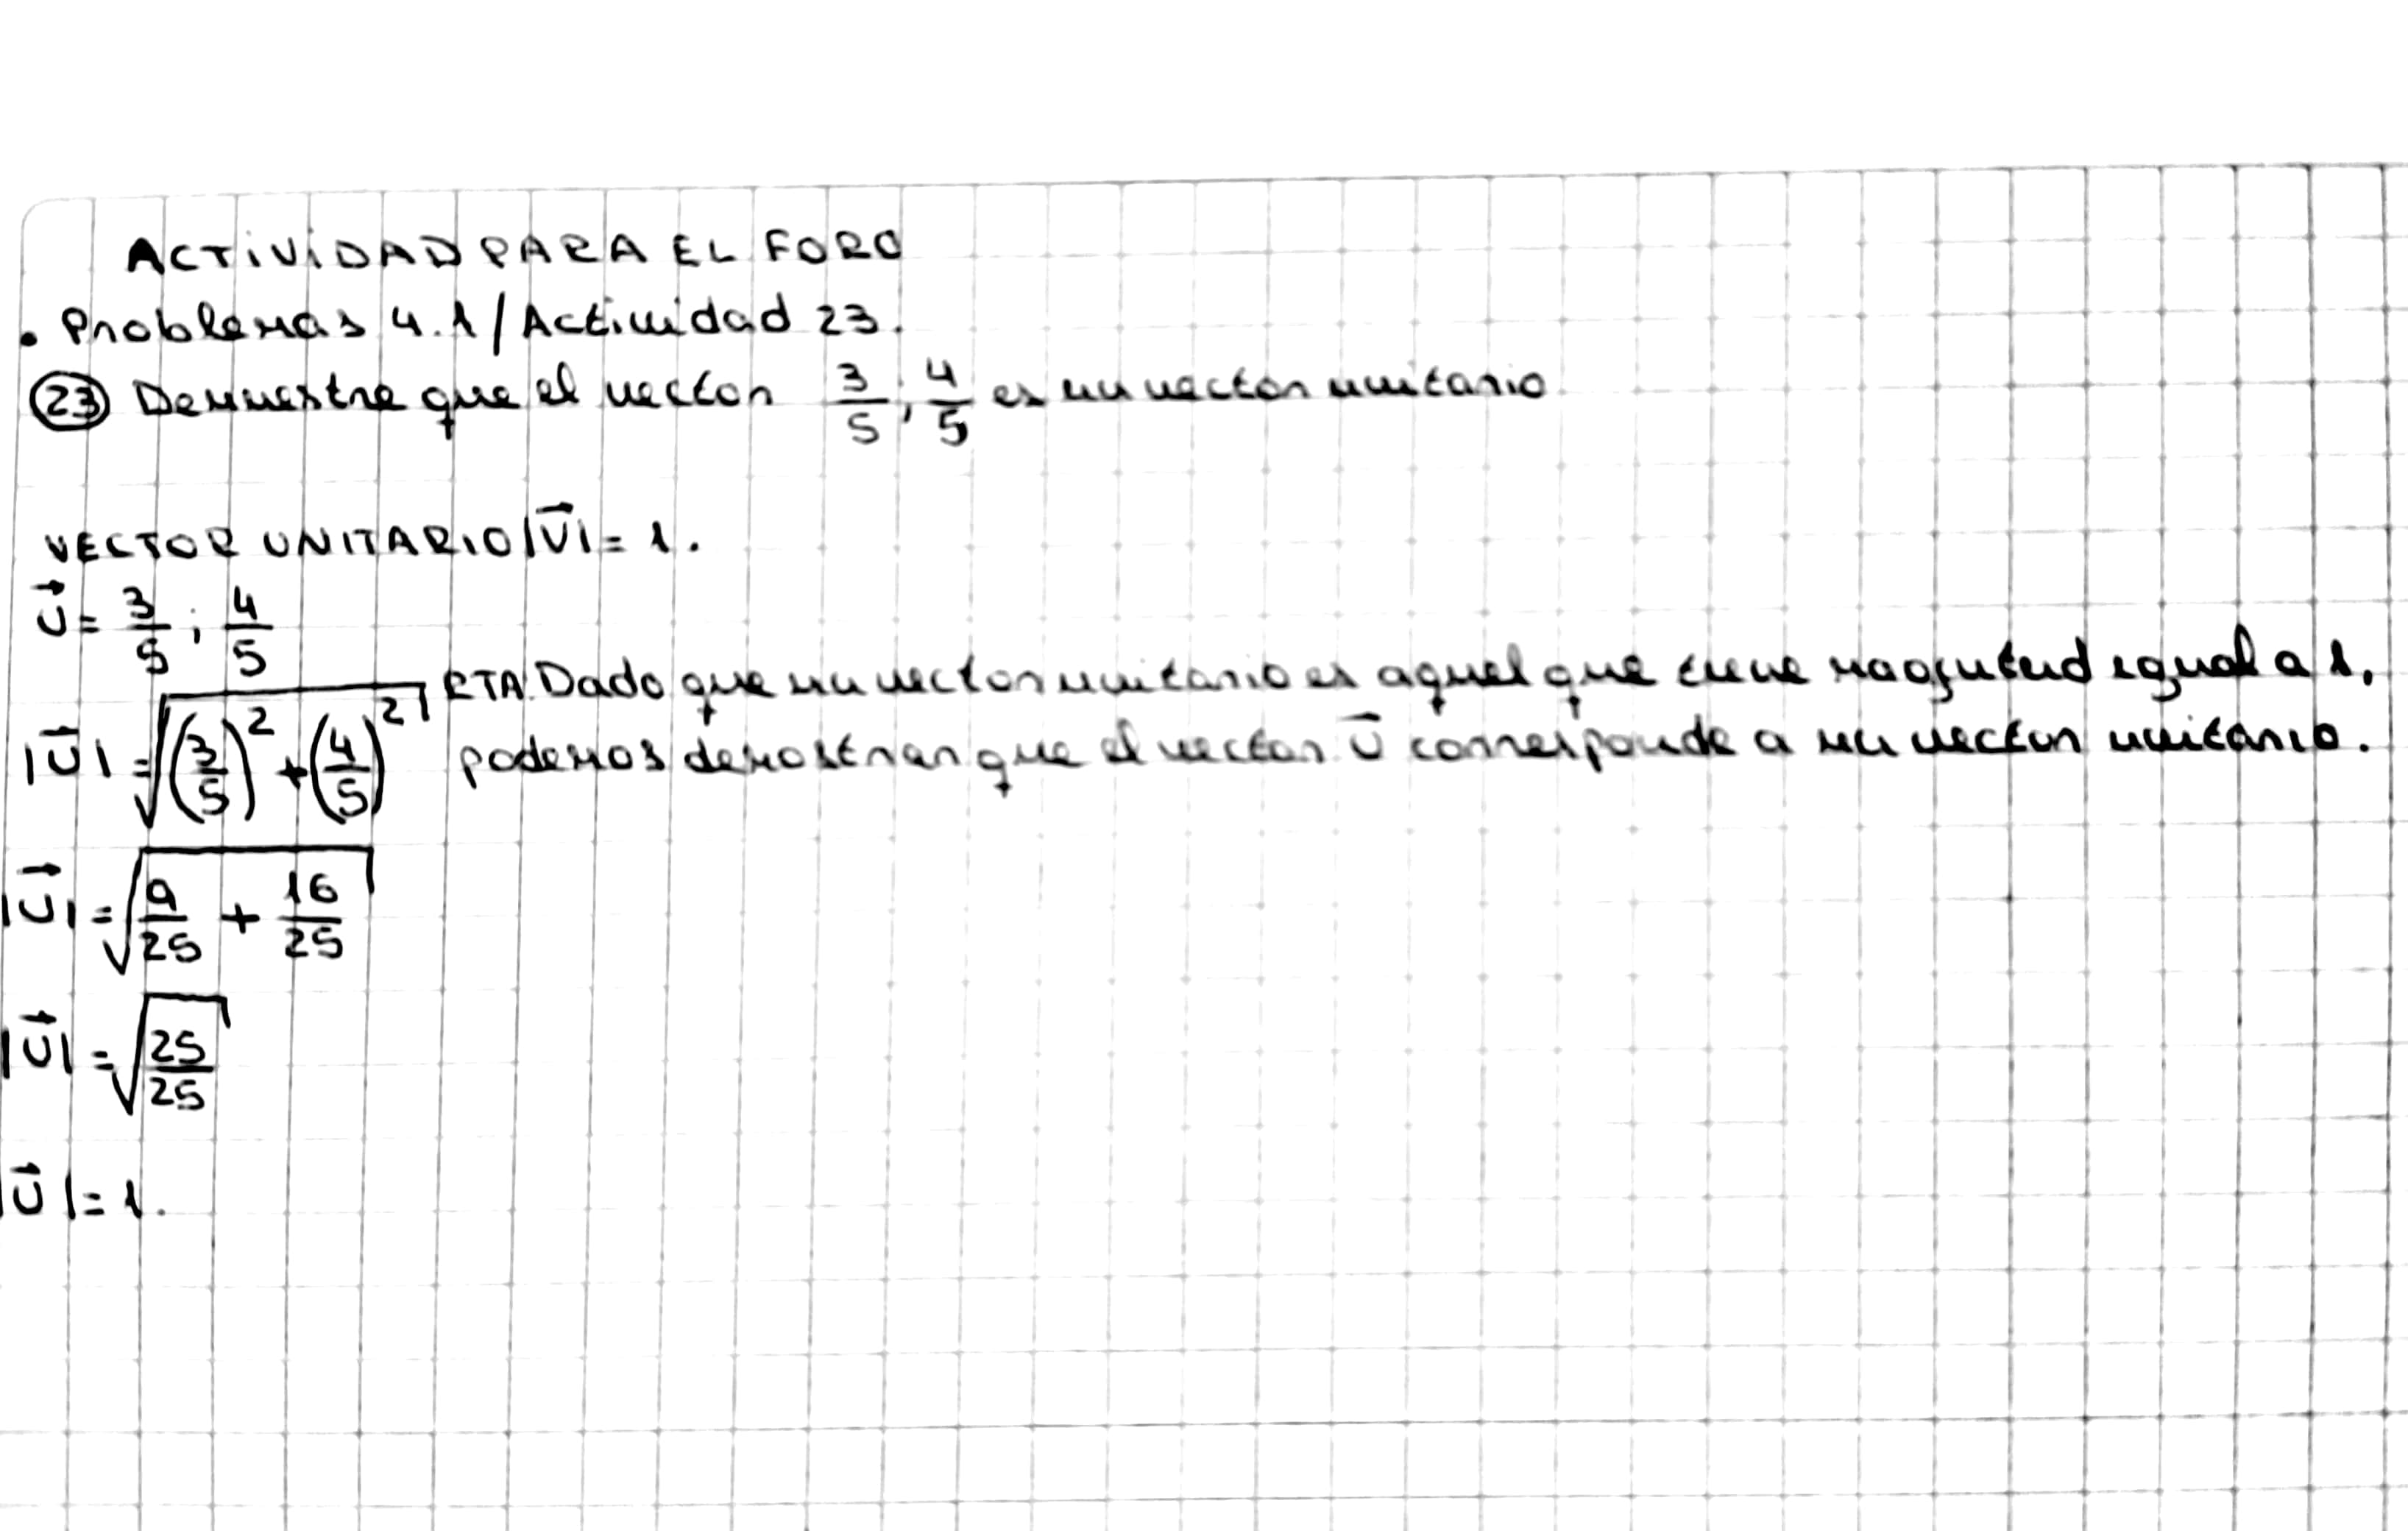 ACTIVIDAD PARA EL FORO
• Problemas 4.1 / Actividad 23.
23 Demuestre que el vector 3/5 ; 4/5 es un vector unitario
VECTOR UNITARIO |U⃗| = 1.
U⃗ = 3/5 ; 4/5
|U⃗| = √((3/5)² + (4/5)²)
RTA: Dado que un vector unitario es aquel que tiene magnitud igual a 1,
podemos demostrar que el vector U⃗ corresponde a un vector unitario.
|U⃗| = √(9/25 + 16/25)
|U⃗| = √(25/25)
|U⃗| = 1.